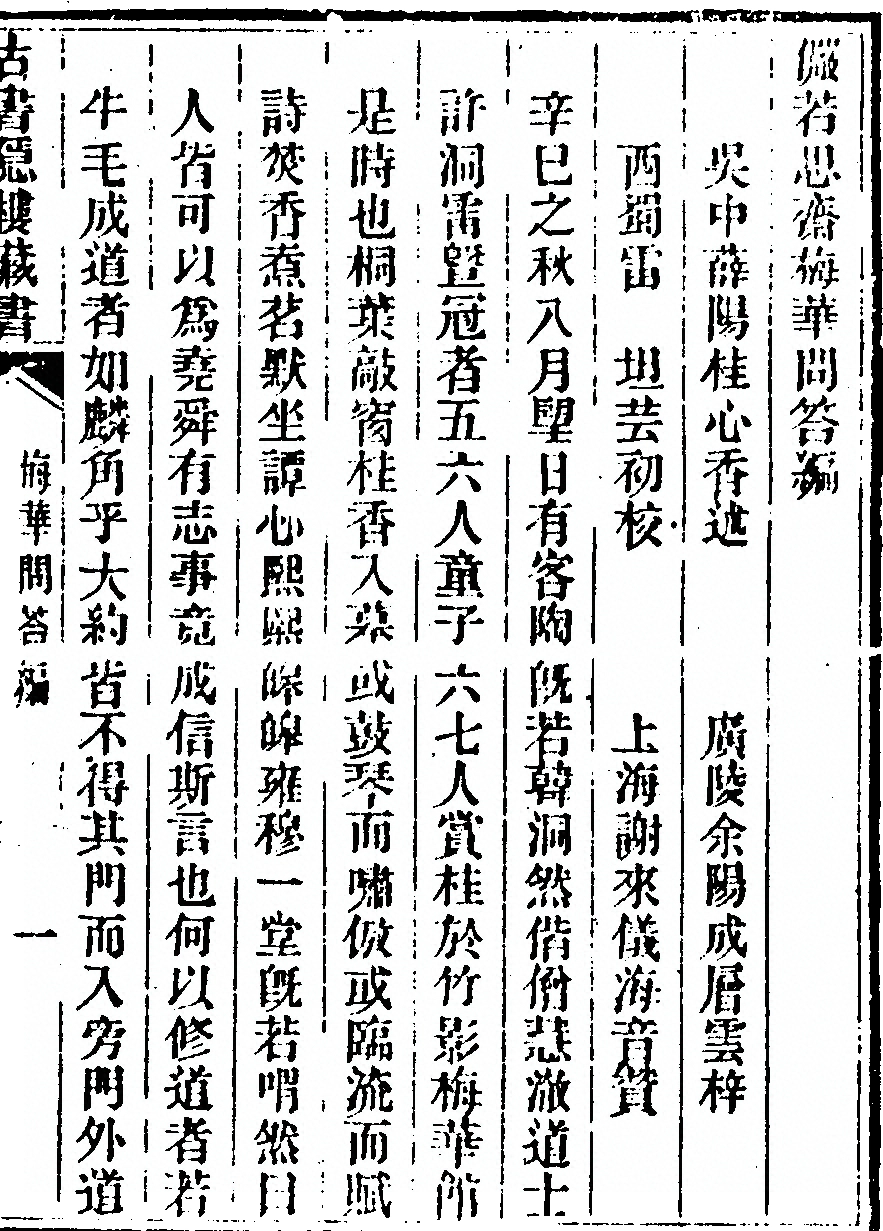 儼若思齋梅華問答編
吳中薛陽桂心香述　廣陵余陽成層雲梓
西蜀雷　坦芸初核　上海謝來儀海音贊
辛巳之秋八月朢日有客陶旣若韓洞然偕僧慧澈道士
許洞雷曁冠者五六人童子六七人賞桂於竹影梅華館
是時也桐葉敲窗桂香入幕或鼓琴而嘯傲或臨流而賦
詩焚香煮茗默坐譚心熙熙皞皞雍穆一堂旣若喟然曰
人皆可以爲堯舜有志事竟成信斯言也何以修道者若
牛毛成道者如麟角乎大約皆不得其門而入旁門外道
古書隱樓藏書
梅華問答編
一